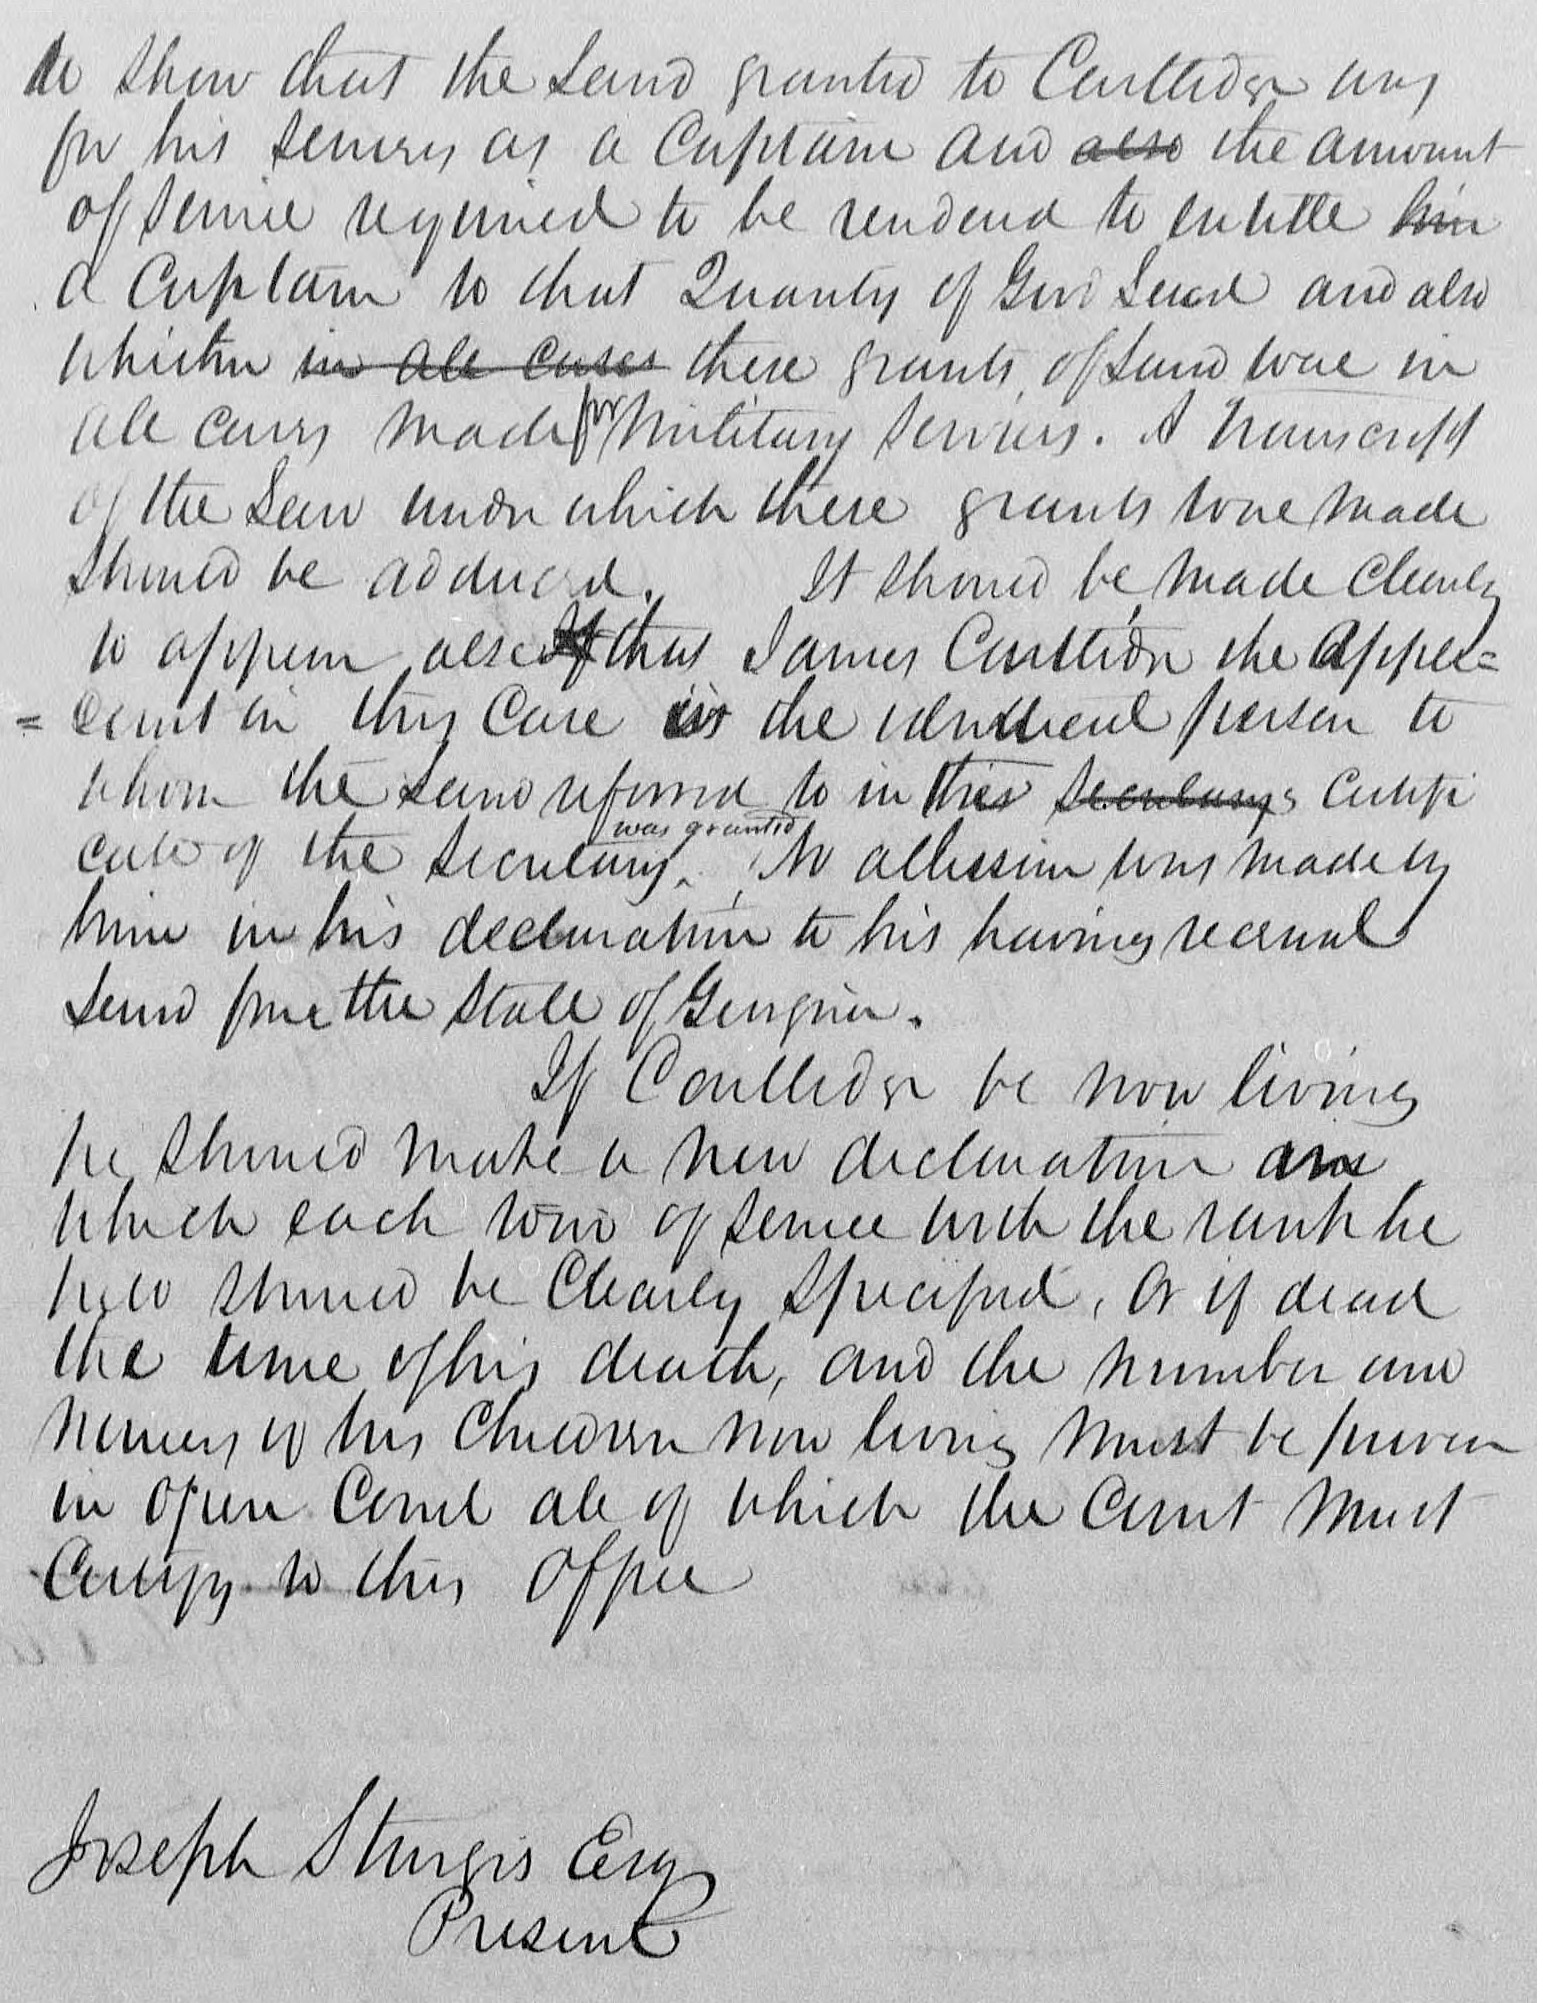 to show that the Land granted to Coulledge was
for his services as a Captain and also the amount
of service required to be rendered to entitle him
a Captain to that Quantity of Land and also
whether in all cases these grants of Land were in
all cases made for Military Services. A Transcript
of the Law under which these grants were made
should be adduced. It should be made clearly
to appear also that James the Appli=
=cant in this Case is the identical person to
whom the Land referred to in this Secretarys Certifi
cate of the Secretary was granted. No allusion was made by
him in his declaration to his having received
Land from the State of Georgia.
If Coulledge be now living
he should make a new declaration in
which each tour of service with the rank he
held should be Clearly Specified, Or if dead
the time of his death, and the number and
names of his Children now living must be proven
in open Court all of which the Court must
Certify to this Office
Joseph Sturgis Esq
Present